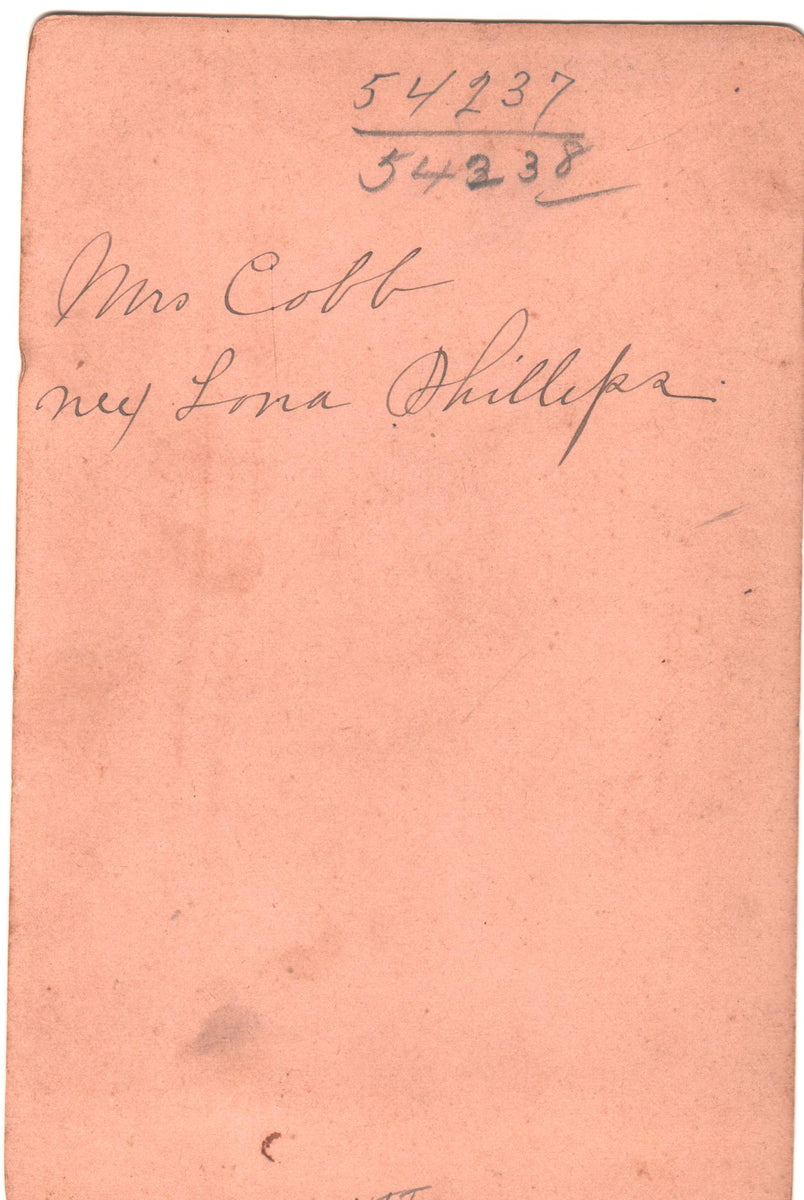 54237
54238
Mrs Cobb
nee Lona Phillips